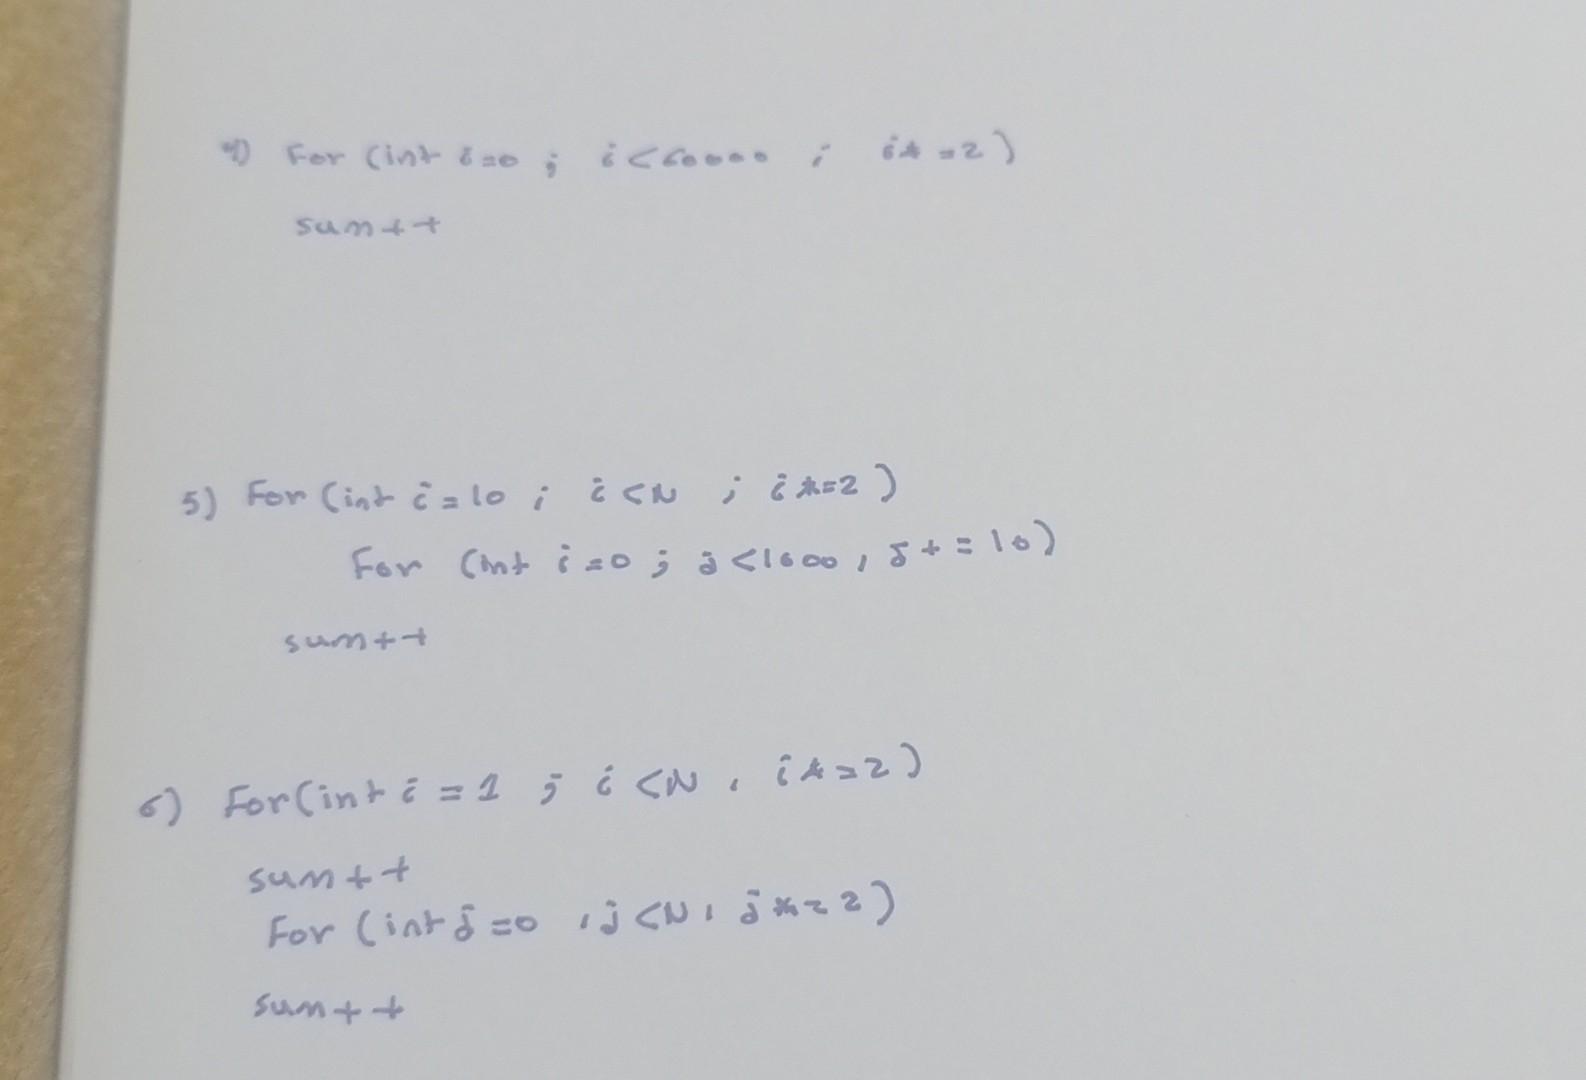 4) For (int i=0 ; i<60000 ; i*=2)
sum++
5) For (int i=10 ; i<N ; i*=2)
For (int i=0 ; j<1000 , j+=10)
sum++
6) For(int i=1 ; i<N , i*=2)
sum++
For (int j=0 , j<N , j*=2)
sum++